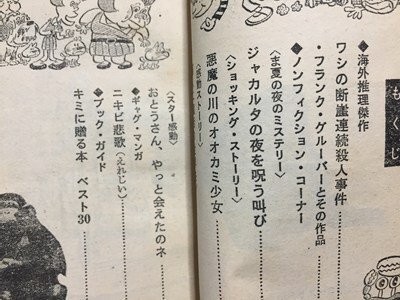 もくじ
◆海外推理傑作
ワシの断崖連続殺人事件
・フランク・グルーバーとその作品
◆ノンフィクション・コーナー
〈ま夏の夜のミステリー〉
ジャカルタの夜を呪う叫び
〈ショッキング・ストーリー〉
悪魔の川のオオカミ少女
〈感動ストーリー〉
〈スター感動〉
おとうさん、やっと会えたのネ
◆ギャグ・マンガ
ニキビ悲歌（えれじい）
◆ブック・ガイド
キミに贈る本 ベスト30